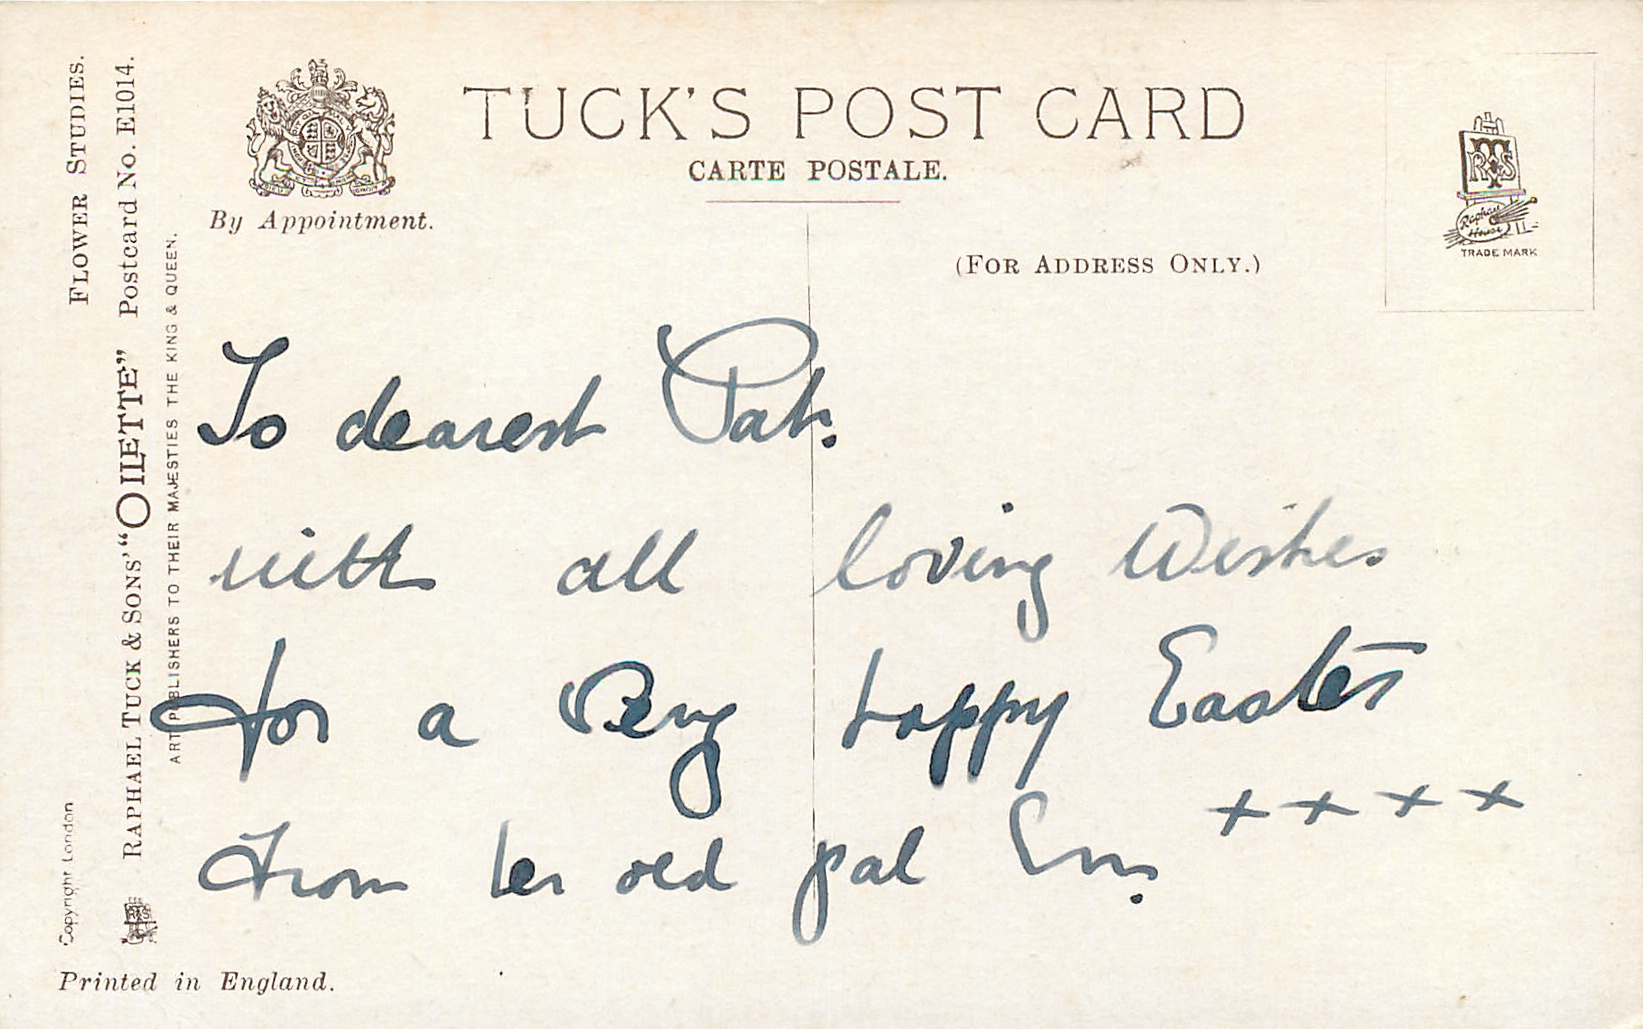 FLOWER STUDIES.
RAPHAEL TUCK & SONS' "OILETTE" Postcard No. E1014.
ART PUBLISHERS TO THEIR MAJESTIES THE KING & QUEEN.
Copyright London
By Appointment.
TUCK'S POST CARD
CARTE POSTALE.
(FOR ADDRESS ONLY.)
RTS
Raphael
House
TRADE MARK
To dearest Pat.
with all loving Wishes
for a Very happy Easter
From her old pal
x x x x
Printed in England.